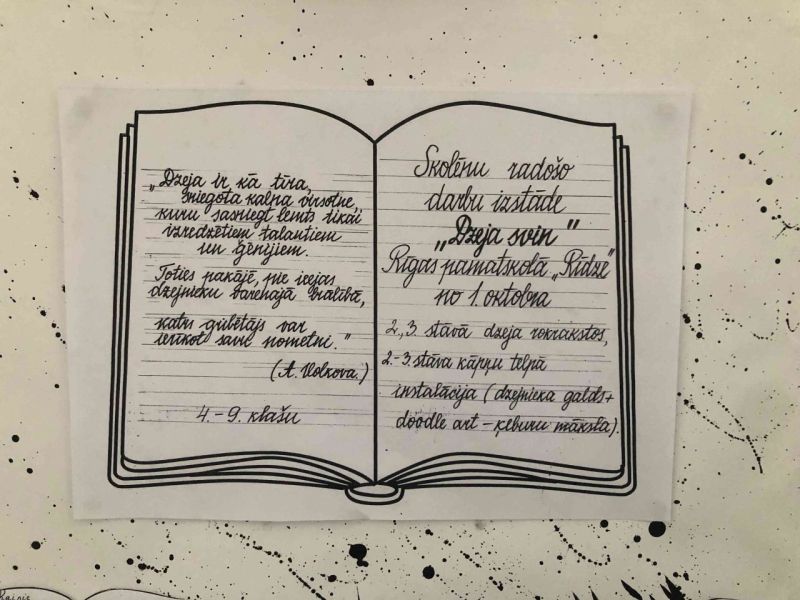 „Dzeja ir kā tīra,
sniegota kalna virsotne,
kuru sasniegt lemts tikai
izredzētiem talantiem
un ģēnijiem.
Toties pakājē, pie ieejas
dzejnieku varenajā brālībā,
katrs gribētājs var
ierīkot savu nometni."
(A. Volkova.)
4.-9. klašu
Skolēnu radošo
darbu izstāde
„Dzeja svin"
Rīgas pamatskolā „Rīdze"
no 1. oktobra
2., 3. stāvā dzeja rokrakstos,
2.-3. stāva kāpņu telpā
instalācija (dzejnieka galds+
doodle art - ķeburu māksla).